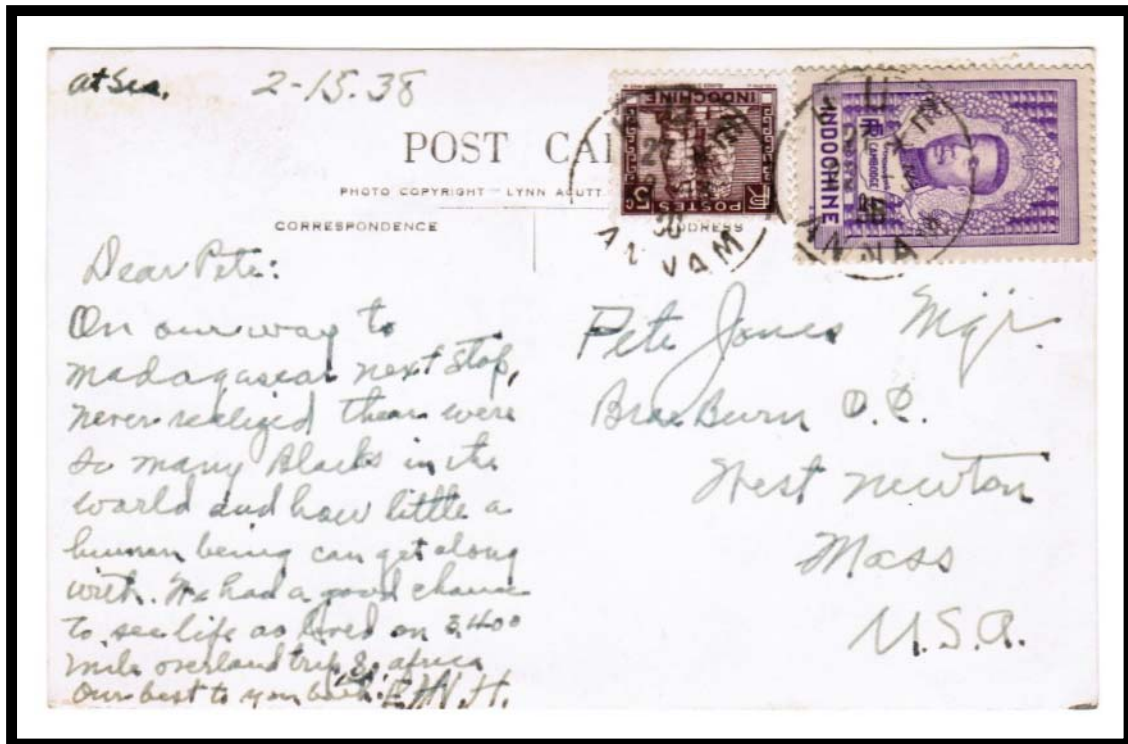 at Sea. 2-15.38
POST
PHOTO COPYRIGHT LYNN ACUTT
CORRESPONDENCE
ADDRESS
INDOCHINE
POSTES
5c
INDOCHINE
CAMBODGE
ANNAM
ANNAM
Dear Pete:
On our way to
Madagascar next stop,
never realized there were
so many Blacks in the
world and how little a
human being can get along
with. We had a good chance
to see life as lived on 3400
mile overland trip, So. Africa
Our best to you both.
Pete Jones Mgr.
Brae Burn
West Newton
Mass
U.S.A.